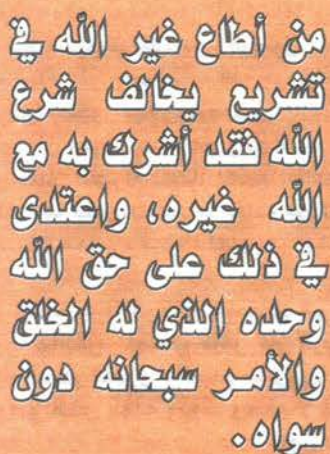 من أطاع غير الله في
تشريع يخالف شرع
الله فقد أشرك به مع
الله غيره، واعتدى
في ذلك على حق الله
وحده الذي له الخلق
والأمر سبحانه دون
سواه.